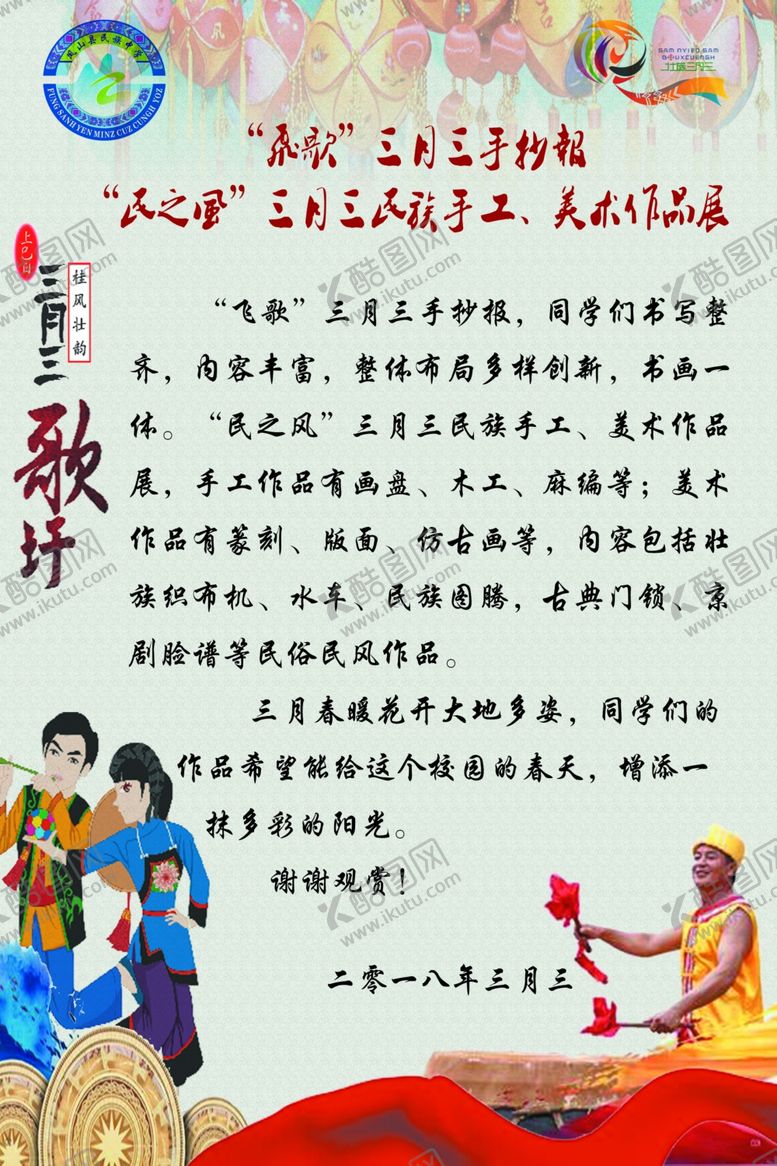 凤山县民族中学
FUNG SANH YEN MINZ CUZ CUNGH YOZ
SAM NYIED SAM
GOUXCUENGH
壮族三月三
“飛歌”三月三手抄報
“民之風”三月三民族手工、美术作品展
上巳日
三月三
桂风壮韵
歌圩
“飞歌”三月三手抄报，同学们书写整
齐，内容丰富，整体布局多样创新，书画一
体。“民之风”三月三民族手工、美术作品
展，手工作品有画盘、木工、麻编等；美术
作品有篆刻、版面、仿古画等，内容包括壮
族织布机、水车、民族图腾，古典门锁、京
剧脸谱等民俗民风作品。
三月春暖花开大地多姿，同学们的
作品希望能给这个校园的春天，增添一
抹多彩的阳光。
谢谢观赏！
二零一八年三月三
酷图网
www.ikutu.com